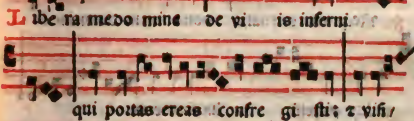 Libera me domine de viis inferni
qui portas ereas confregisti: ⁊ visi/